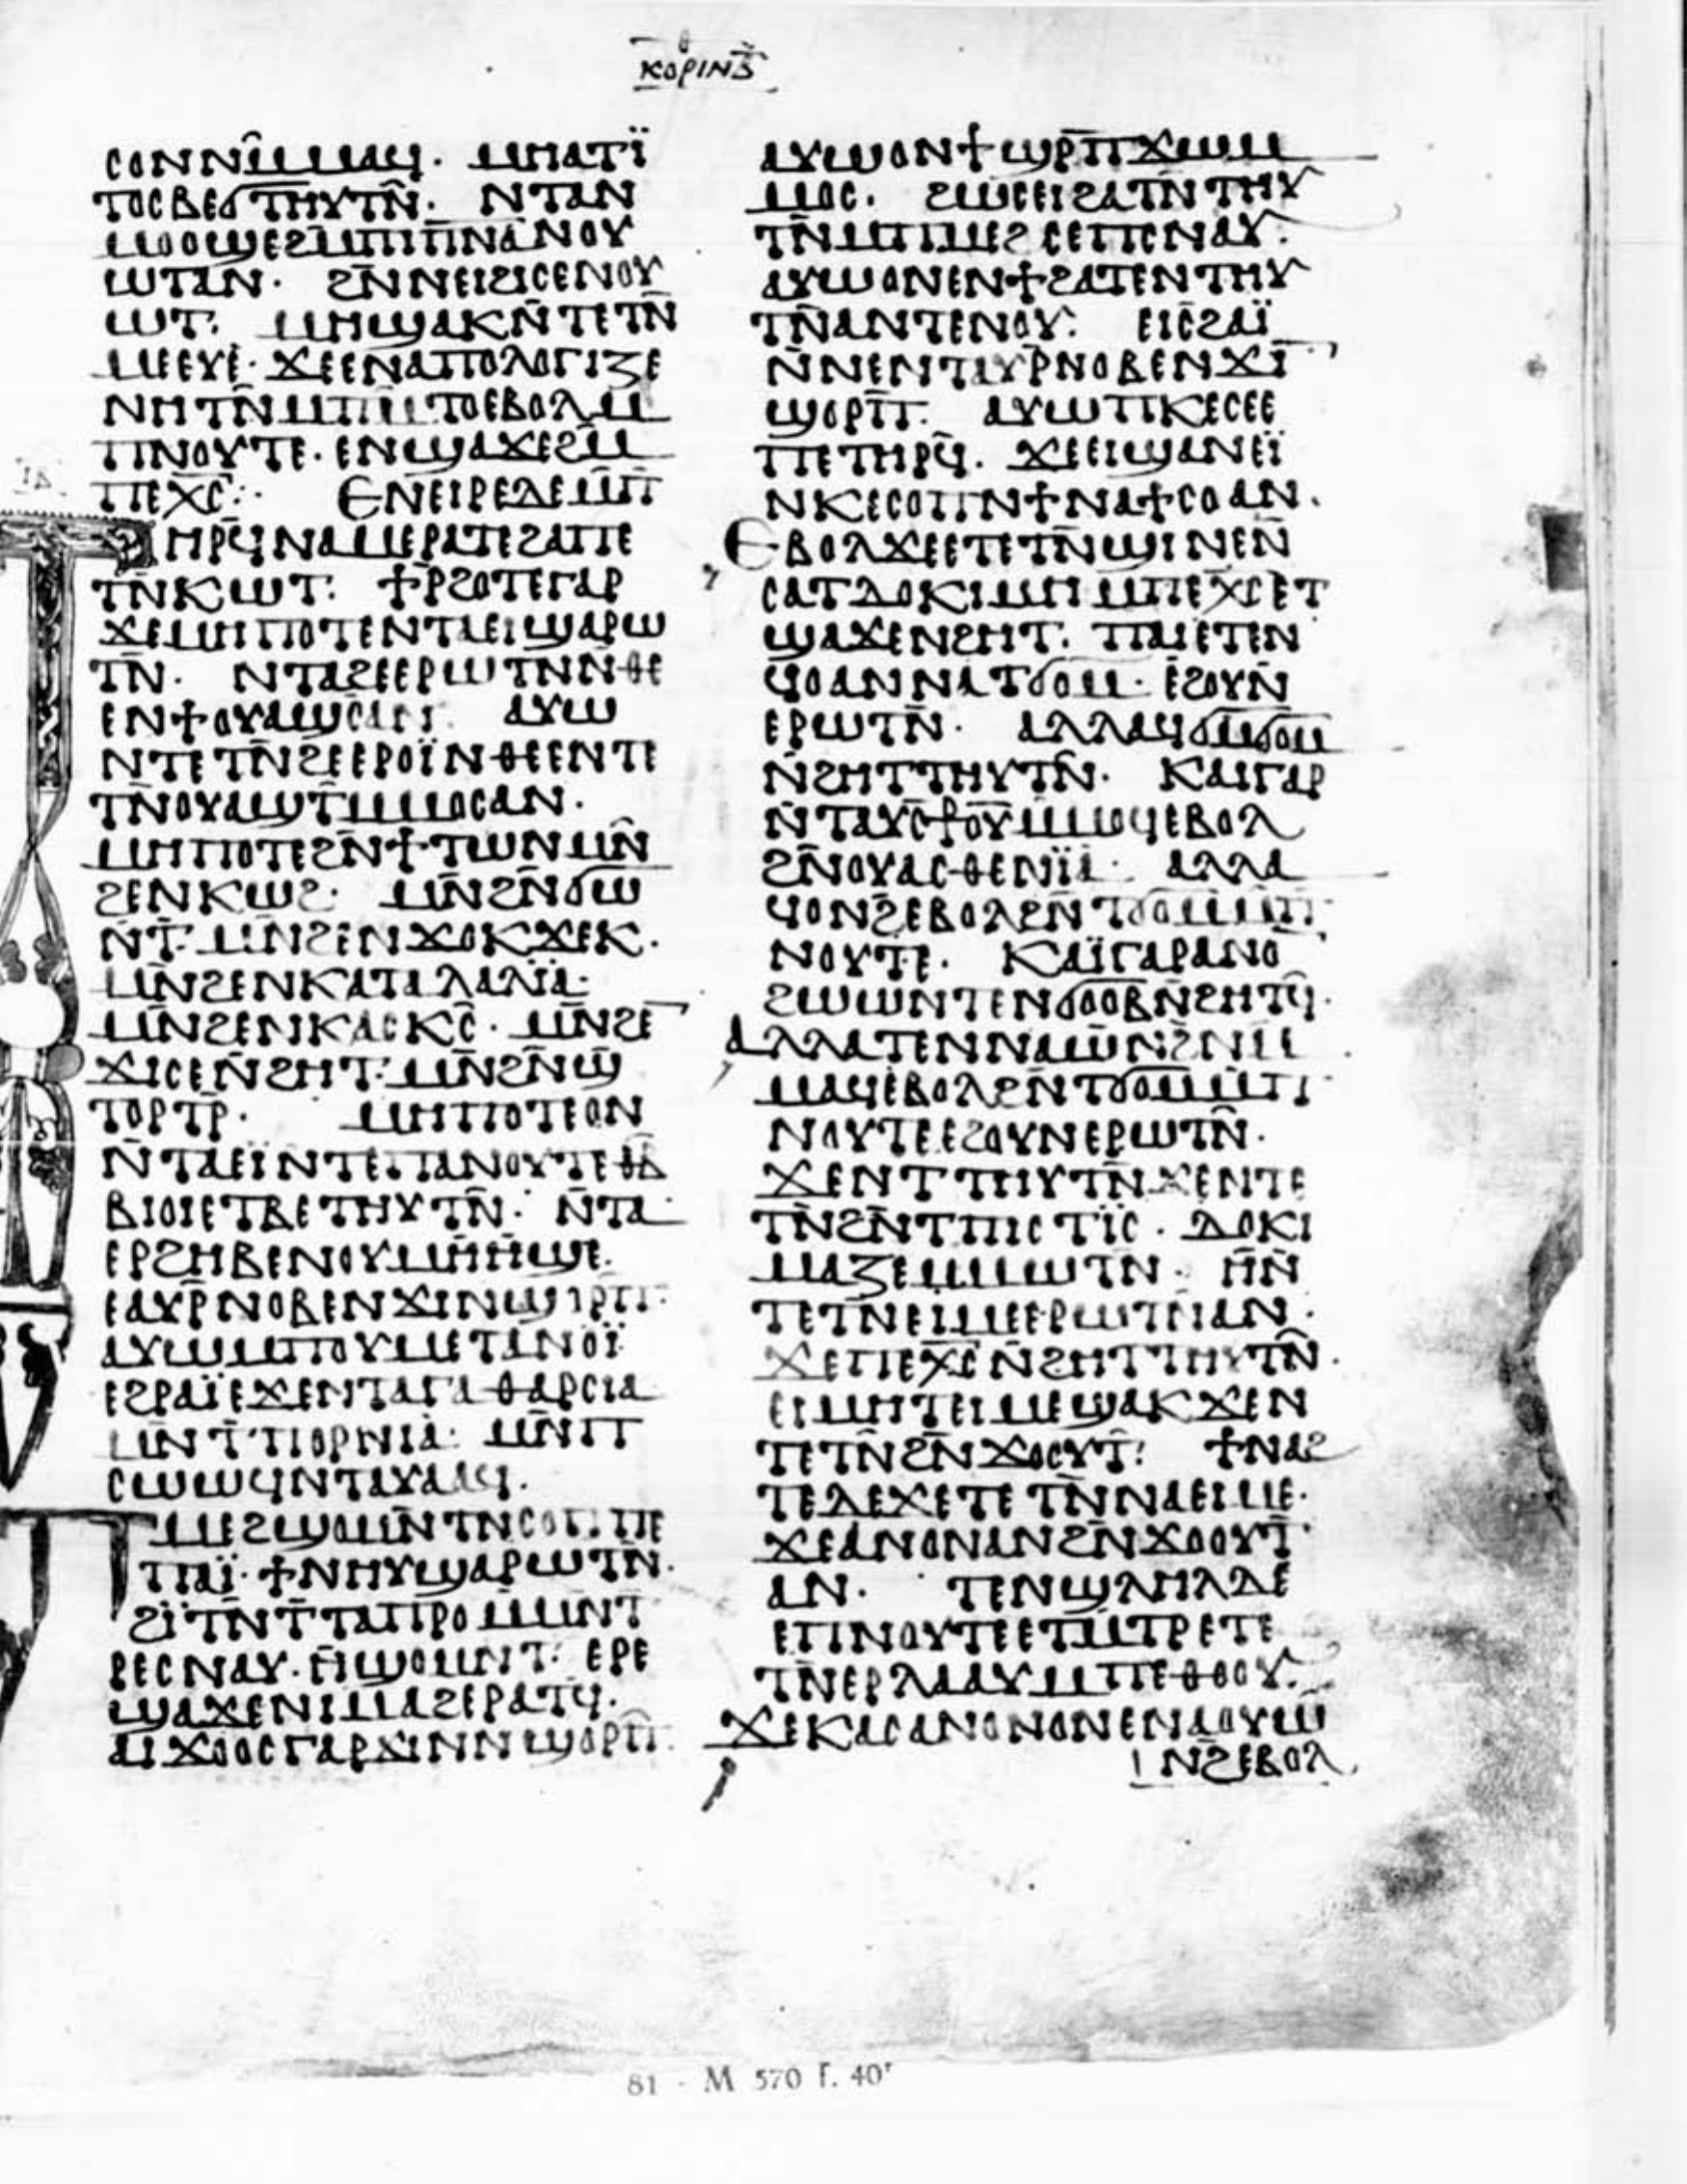 ⲕⲟⲣⲓⲛⲑ
ⲥⲟⲛⲛⲙ̄ⲙⲁϥ. ⲙⲏⲁⲧⲓ̈
ⲧⲟⲥⲃⲉϭⲧⲏⲩⲧⲛ̄. ⲛⲧⲁⲛ
ⲙⲟⲟϣⲉϩⲙⲡⲓⲡ̄ⲛ̄ⲁ̄ⲛⲟⲩ
ⲱⲧⲁⲛ. ϩⲛ̄ⲛⲉⲓϩⲓⲥⲉⲛⲟⲩ
ⲱⲧ. ⲙⲏϣⲁⲕⲛ̄ⲧⲉⲧⲛ̄
ⲙⲉⲉⲩⲉ. ϫⲉⲉⲛⲁⲡⲟⲗⲟⲅⲓⲍⲉ
ⲛⲏⲧⲛ̄ⲙⲡⲙ̄ⲧⲟⲉⲃⲟⲗⲙ̄
ⲡⲛⲟⲩⲧⲉ. ⲉⲛϣⲁϫⲉϩⲙ̄
ⲡⲉⲭ̄ⲥ̄. ⲉⲛⲉⲓⲣⲉⲇⲉⲙ̄ⲡ
ⲧⲏⲣϥ̄ⲛⲁⲙⲉⲣⲁⲧⲉϩⲁⲡⲉ
ⲧⲛ̄ⲕⲱⲧ. ϯⲣ̄ϩⲟⲧⲉⲅⲁⲣ
ϫⲉⲙⲏⲡⲟⲧⲉⲛⲧⲁⲉⲓϣⲁⲣⲱ
ⲧⲛ̄. ⲛⲧⲁϩⲉⲉⲣⲱⲧⲛⲛ̄ⲑⲉ
ⲉⲛϯⲟⲩⲁϣⲥⲁⲛ. ⲁⲩⲱ
ⲛⲧⲉⲧⲛ̄ϩⲉⲉⲣⲟⲓ̈ⲛⲑⲉⲉⲛⲧⲉ
ⲧⲛ̄ⲟⲩⲁϣⲧ̄ⲙⲙⲟⲥⲁⲛ.
ⲙⲏⲡⲟⲧⲉϩⲛϯⲧⲱⲛⲙⲛ̄
ϩⲉⲛⲕⲱϩ. ⲙⲛ̄ϩⲛ̄ϭⲱ
ⲛⲧ̄. ⲙⲛ̄ϩⲉⲛϫⲟⲕϫⲉⲕ.
ⲙⲛ̄ϩⲉⲛⲕⲁⲧⲁⲗⲁⲗⲓ̈ⲁ.
ⲙⲛ̄ϩⲉⲛⲕⲁⲥⲕⲥ̄. ⲙⲛ̄ϩⲉ̄
ϫⲓⲥⲉⲛ̄ϩⲏⲧ. ⲙⲛ̄ϩⲛ̄ϣ
ⲧⲟⲣⲧⲣ̄. ⲙⲏⲡⲟⲧⲉⲟⲛ
ⲛ̄ⲧⲁⲉⲓ̈ⲛⲧⲉⲡⲁⲛⲟⲩⲧⲉⲑⲃ̄
ⲃⲓⲟⲓⲉⲧⲃⲉⲧⲏⲩⲧⲛ̄. ⲛ̄ⲧⲁ
ⲉⲣϩⲏⲃⲉⲛⲟⲩⲙⲏⲏϣⲉ.
ⲉⲁⲩⲣ̄ⲛⲟⲃⲉⲛϫⲓⲛϣⲟⲣⲡ.
ⲁⲩⲱⲙⲡⲟⲩⲙⲉⲧⲁⲛⲟⲓ̈
ⲉϩⲣⲁⲓ̈ⲉϫⲉⲛⲧⲁⲅⲁⲑⲁⲣⲥⲓⲁ
ⲙⲛⲧⲡⲟⲣⲛⲓⲁ. ⲙⲛ̄ⲡ
ⲥⲱⲱϥⲛⲧⲁⲩⲁⲁϥ.
ⲡⲙⲉϩϣⲟⲙⲛ̄ⲧⲛⲥⲟⲡ. ⲡⲉ
ⲡⲁⲓ̈. ϯⲛⲏⲩϣⲁⲣⲱⲧⲛ̄.
ϩⲓ̈ⲧⲛ̄ⲧⲧⲁⲡⲣⲟⲙ̄ⲙⲛⲧ
ⲣⲉⲥⲛⲁⲩ. ⲏϣⲟⲙⲛⲧ. ⲉⲣⲉ
ϣⲁϫⲉⲛⲓⲙⲁϩⲉⲣⲁⲧϥ.
ⲁⲓϫⲟⲟⲥⲅⲁⲣϫⲓⲛⲛϣⲟⲣⲡ̄.
ⲁⲩⲱⲟⲛϯϣⲣ̄ⲡϫⲱⲙ
ⲙⲟⲥ. ϩⲱⲥⲉⲓϩⲁⲧⲛ̄ⲧⲏⲩ
ⲧⲛ̄ⲙⲡⲙⲉϩⲥⲉⲡⲥⲛⲁⲩ.
ⲁⲩⲱⲟⲛⲉⲛϯϩⲁⲧⲉⲛⲧⲏⲩ
ⲧⲛ̄ⲁⲛⲧⲉⲛⲟⲩ. ⲉⲓⲥϩⲁⲓ̈
ⲛ̄ⲛⲉⲛⲧⲁⲩⲣ̄ⲛⲟⲃⲉⲛϫⲓ̄
ϣⲟⲣⲡ̄. ⲁⲩⲱⲡⲕⲉⲥⲉⲉ
ⲡⲉⲧⲏⲣϥ̄. ϫⲉⲉⲓϣⲁⲛⲉⲓ̈
ⲛⲕⲉⲥⲟⲡⲛϯⲛⲁϯⲥⲟⲁⲛ.
ⲉⲃⲟⲗϫⲉⲉⲧⲉⲧⲛ̄ϣⲓⲛⲉⲛ̄
ⲥⲁⲧⲇⲟⲕⲓⲙⲏⲙⲡⲉⲭ̄ⲥ̄ⲉⲧ
ϣⲁϫⲉⲛϩⲏⲧ. ⲡⲁⲓⲉⲧⲉⲛ
ϥⲟⲁⲛⲛⲁⲧϭⲟⲙ. ⲉϩⲟⲩⲛ̄
ⲉⲣⲱⲧⲛ̄. ⲁⲗⲗⲁϥϭⲙ̄ϭⲟⲙ
ⲛ̄ϩⲏⲧⲧⲏⲩⲧⲛ̄. ⲕⲁⲓⲅⲁⲣ
ⲛⲧⲁⲩⲥϯⲟⲩⲙ̄ⲙⲟϥⲉⲃⲟⲗ
ϩⲛ̄ⲟⲩⲁⲥⲑⲉⲛⲓ̈ⲁ. ⲁⲗⲗⲁ
ϥⲟⲛϩⲉⲃⲟⲗϩⲛ̄ⲧϭⲟⲙⲙ̄ⲡ
ⲛⲟⲩⲧⲉ. ⲕⲁⲓ̈ⲅⲁⲣⲁⲛⲟ̄
ϩⲱⲱⲛⲧⲉⲛϭⲟⲟⲃⲛ̄ϩⲏⲧϥ̄.
ⲁⲗⲗⲁⲧⲉⲛⲛⲁⲱⲛϩ̄ⲛⲙ̄
ⲙⲁϥⲉⲃⲟⲗϩⲛ̄ⲧϭⲟⲙⲙ̄ⲡ
ⲛⲟⲩⲧⲉⲉϩⲟⲩⲛⲉⲣⲱⲧⲛ̄.
ϫⲉⲛⲧⲧⲏⲩⲧⲛ̄ϫⲉⲛⲧⲉ
ⲧⲛ̄ϩⲛ̄ⲧⲡⲓⲥⲧⲓ̈ⲥ. ⲇⲟⲕⲓ
ⲙⲁⲍⲉⲙⲙⲱⲧⲛ. ⲏⲛ̄
ⲧⲉⲧⲛⲉⲓⲙⲉⲉⲣⲱⲧⲛⲁⲛ.
ϫⲉⲡⲉⲭ̄ⲥ̄ⲛ̄ϩⲏⲧⲧⲏⲩⲧⲛ̄.
ⲉⲓⲙⲏⲧⲉⲓⲙⲉϣⲁⲕϫⲉⲛ
ⲧⲉⲧⲛ̄ϩⲛ̄ϫⲟⲟⲩⲧ̄. ϯⲛⲁϩ
ⲧⲉⲇⲉϫⲉⲧⲉⲧⲛ̄ⲛⲁⲉⲓⲙⲉ.
ϫⲉⲁⲛⲟⲛⲁⲛϩⲛ̄ϫⲟⲟⲩⲧ̄
ⲁⲛ. ⲧⲉⲛϣⲗⲏⲗⲇⲉ
ⲉⲡⲛⲟⲩⲧⲉⲉⲧⲙ̄ⲧⲣⲉⲧⲉ
ⲧⲛⲉⲣⲗⲁⲁⲩⲙ̄ⲡⲉⲑⲟⲟⲩ.
ϫⲉⲕⲁⲥⲁⲛⲟⲛⲟⲛⲉⲛⲁⲟⲩⲱ
ⲛϩⲉⲃⲟⲗ.
81 - M 570 f. 40ʳ